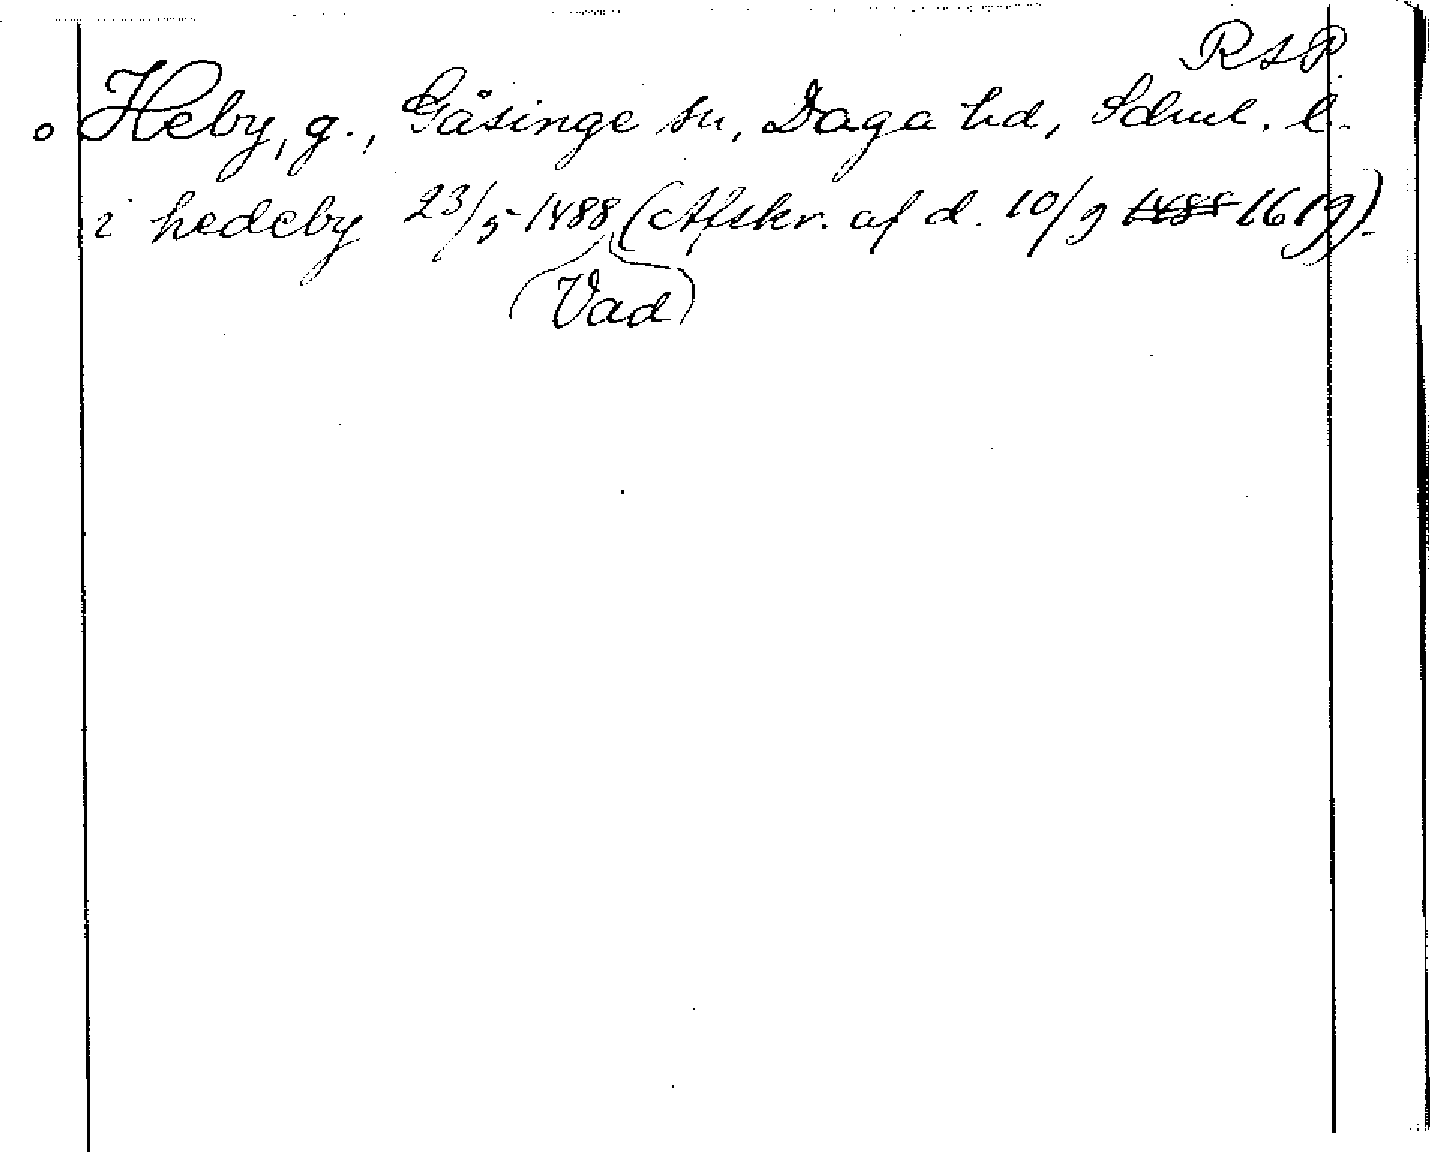 RAP
o Heby, g., Gåsinge sn, Daga hd, Sdml. l.
i hedeby 23/5 1488 (Afskr. af d. 10/9 1488 1619).
(Vad)